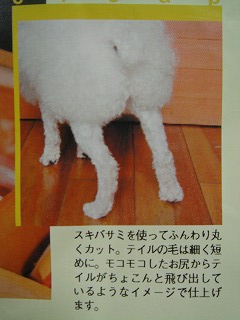 スキバサミを使ってふんわり丸
くカット。テイルの毛は細く短
めに。モコモコしたお尻からテ
イルがちょこんと飛び出して
いるようなイメージで仕上げ
ます。